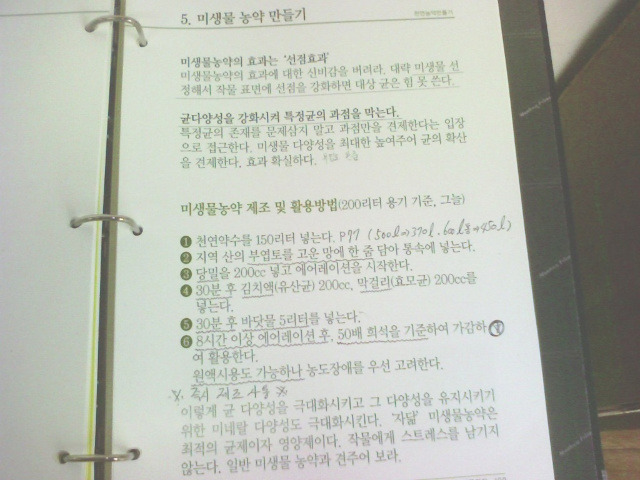 5. 미생물 농약 만들기
천연농약만들기
미생물농약의 효과는 '선점효과'
미생물농약의 효과에 대한 신비감을 버려라. 대략 미생물 선
정해서 작물 표면에 선점을 강화하면 대상 균은 힘 못 쓴다.
균다양성을 강화시켜 특정균의 과점을 막는다.
특정균의 존재를 문제삼지 말고 과점만을 견제한다는 입장
으로 접근한다. 미생물 다양성을 최대한 높여주어 균의 확산
을 견제한다. 효과 확실하다.
미생물농약 제조 및 활용방법(200리터 용기 기준, 그늘)
1 천연약수를 150리터 넣는다. P77 (500l⇒370l, 600l통⇒450l)
2 지역 산의 부엽토를 고운 망에 한 줌 담아 통속에 넣는다.
3 당밀을 200cc 넣고 에어레이션을 시작한다.
4 30분 후 김치액(유산균) 200cc, 막걸리(효모균) 200cc를
넣는다.
5 30분 후 바닷물 5리터를 넣는다.
6 8시간 이상 에어레이션 후, 50배 희석을 기준하여 가감하
여 활용한다.
원액시용도 가능하나 농도장애를 우선 고려한다.
※ 즉시 제조 사용 ※
이렇게 균 다양성을 극대화시키고 그 다양성을 유지시키기
위한 미네랄 다양성도 극대화시킨다. '자닮' 미생물농약은
최적의 균제이자 영양제이다. 작물에게 스트레스를 남기지
않는다. 일반 미생물 농약과 견주어 보라.